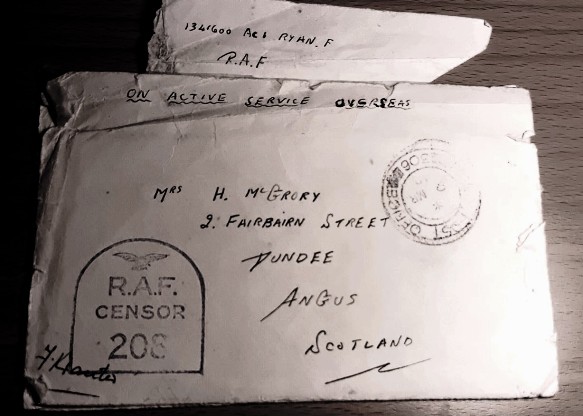 1341600 AC1 RYAN. F
R.A.F
ON ACTIVE SERVICE OVERSEAS
MRS H. McGRORY
2. FAIRBAIRN STREET
DUNDEE
ANGUS
SCOTLAND
R.A.F.
CENSOR
208